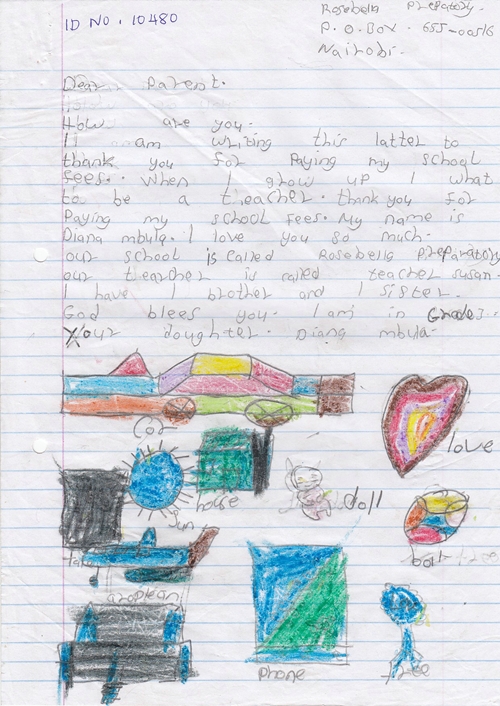 ID NO. 10480
Rosebella Preparatory.
P.O.Box. 655-00516
Nairobi.
Dear Parent.
How are you.
I am writing this latter to
thank you for Paying my school
fees. When I grow up I what
to be a tieacher. thank you for
Paying my school fees. My name is
Diana mbula. I love you so much.
our school is called Rosebella Preparatory
our tiearcher is called teacher susan.
I have 1 brother and 1 sister.
God blees you. I am in Grade 3.
Your doughter. Diana mbula.
Car
love
house
sun
doll
ball
aroplean
Phone
tree